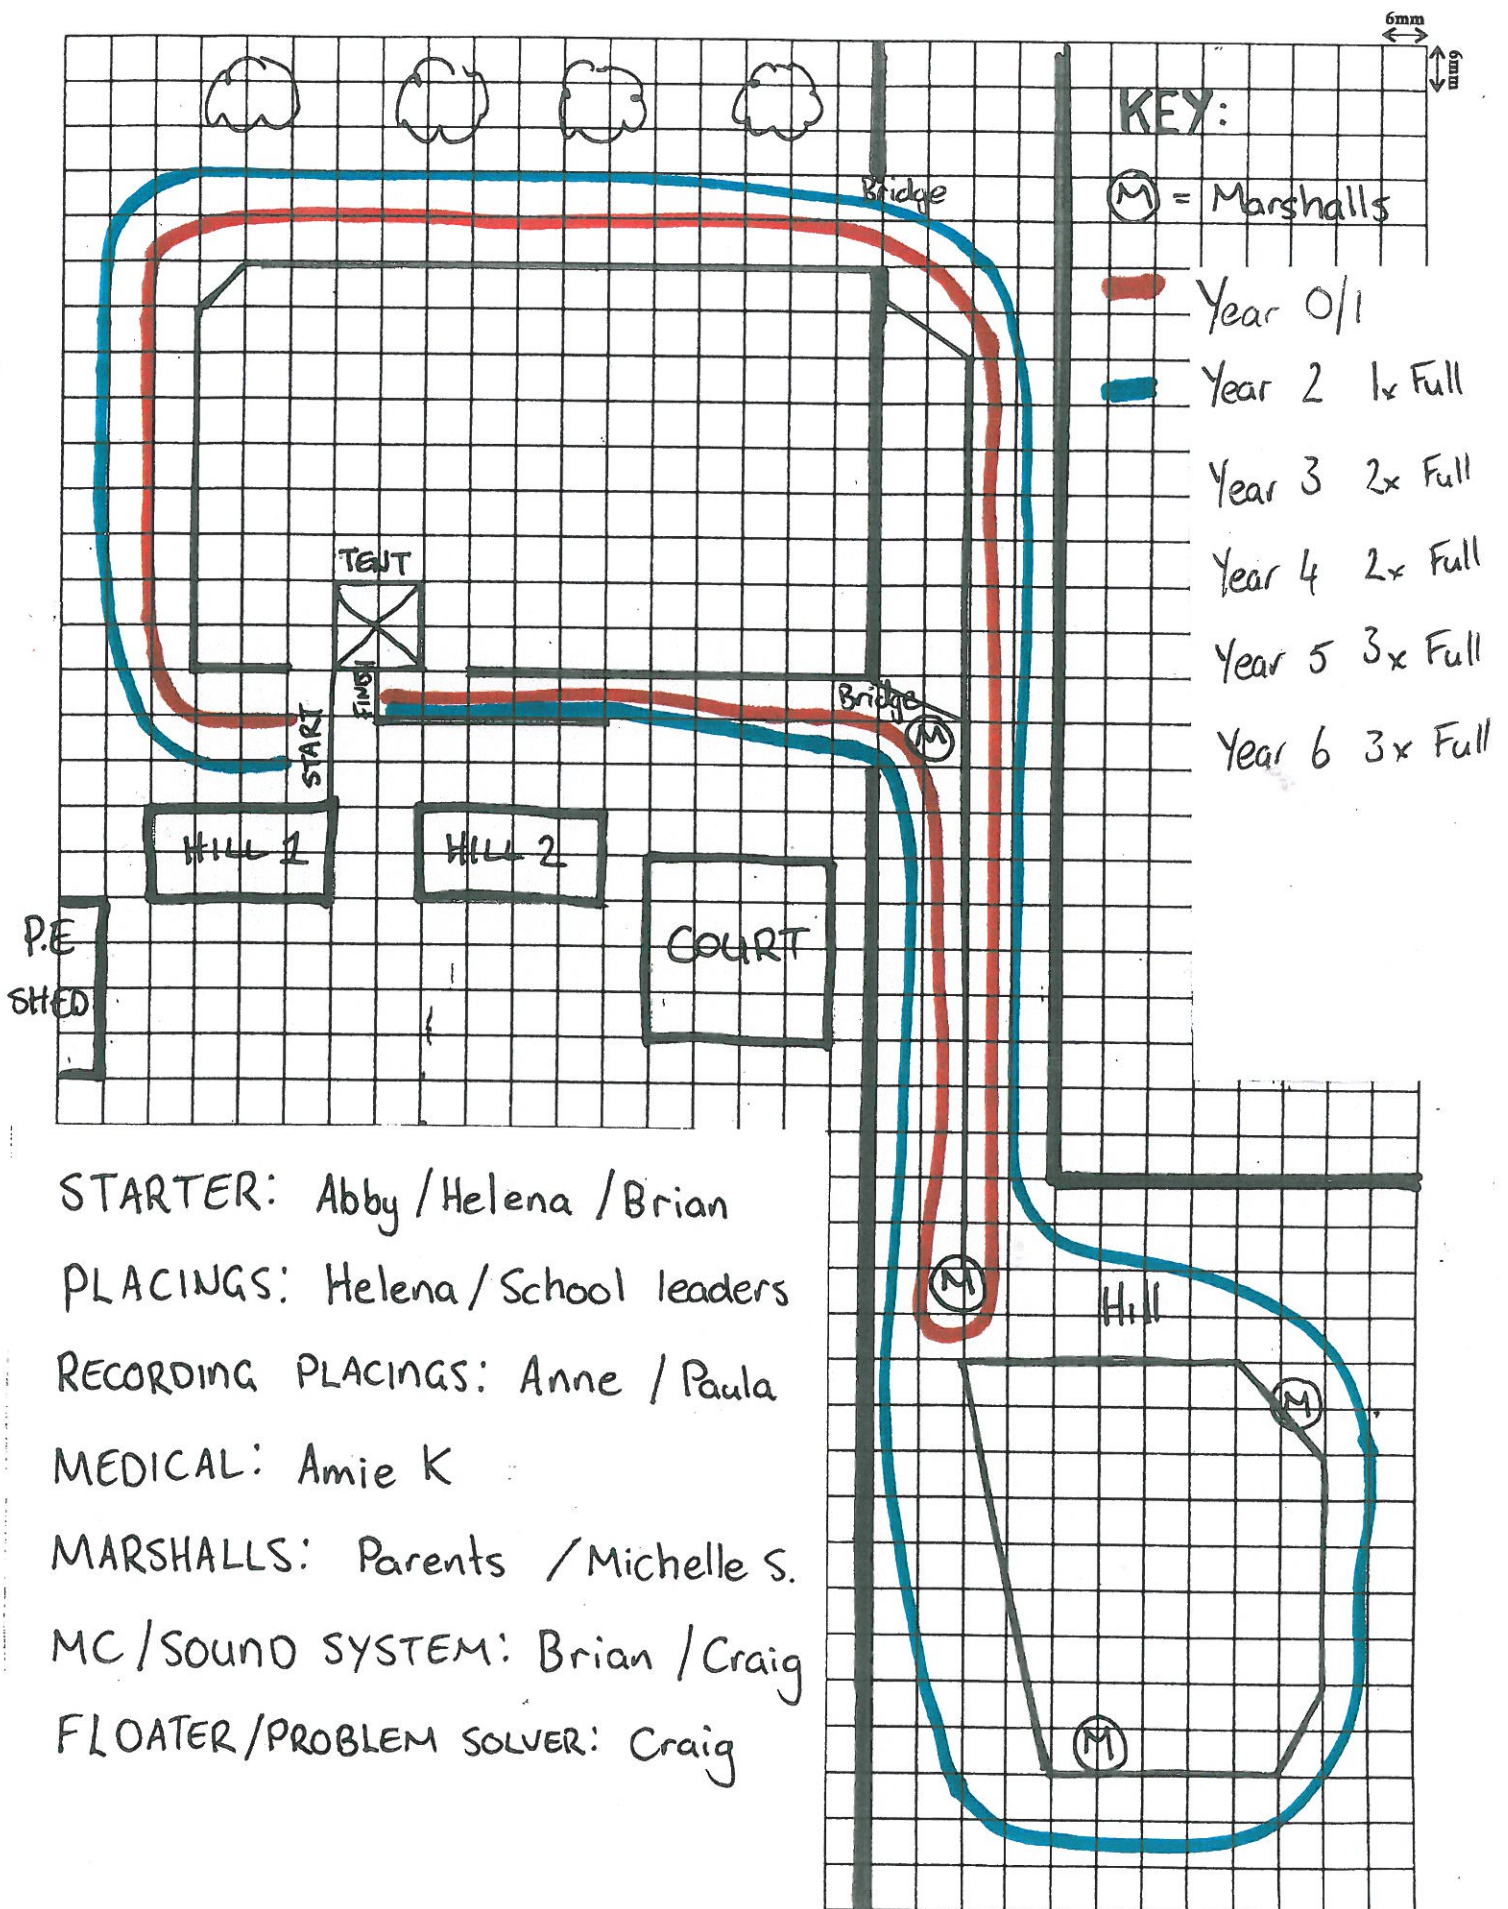 6mm
6mm
KEY:
Bridge
M = Marshalls
Year 0/1
Year 2 1x Full
Year 3 2x Full
TENT
Year 4 2x Full
Year 5 3x Full
FINISH
Bridge
START
M
Year 6 3x Full
HILL 1
HILL 2
P.E
SHED
COURT
STARTER: Abby / Helena / Brian
PLACINGS: Helena / School leaders
M
Hill
RECORDING PLACINGS: Anne / Paula
M
MEDICAL: Amie K
MARSHALLS: Parents / Michelle S.
MC / SOUND SYSTEM: Brian / Craig
FLOATER / PROBLEM SOLVER: Craig
M